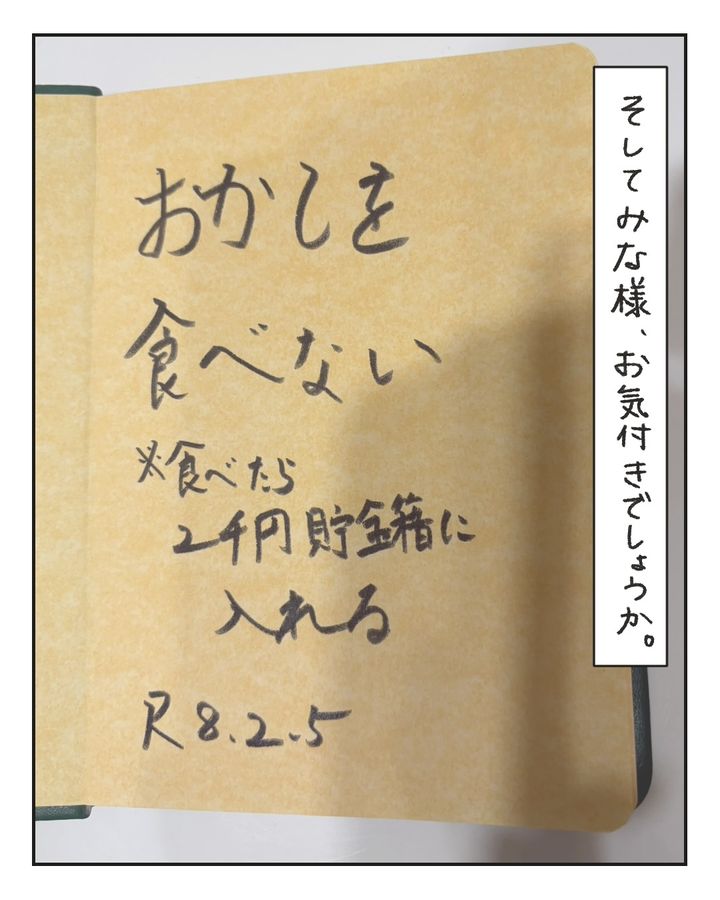 そしてみな様、お気付きでしょうか。
おかしを
食べない
※食べたら
2千円貯金籍に
入れる
R8.2.5